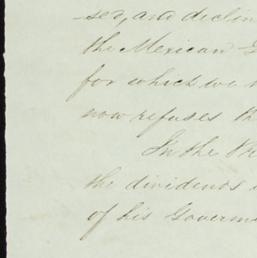 ses, and declin
the Mexican G
for which we
now refuses th
In the
the dividends
of his Governm